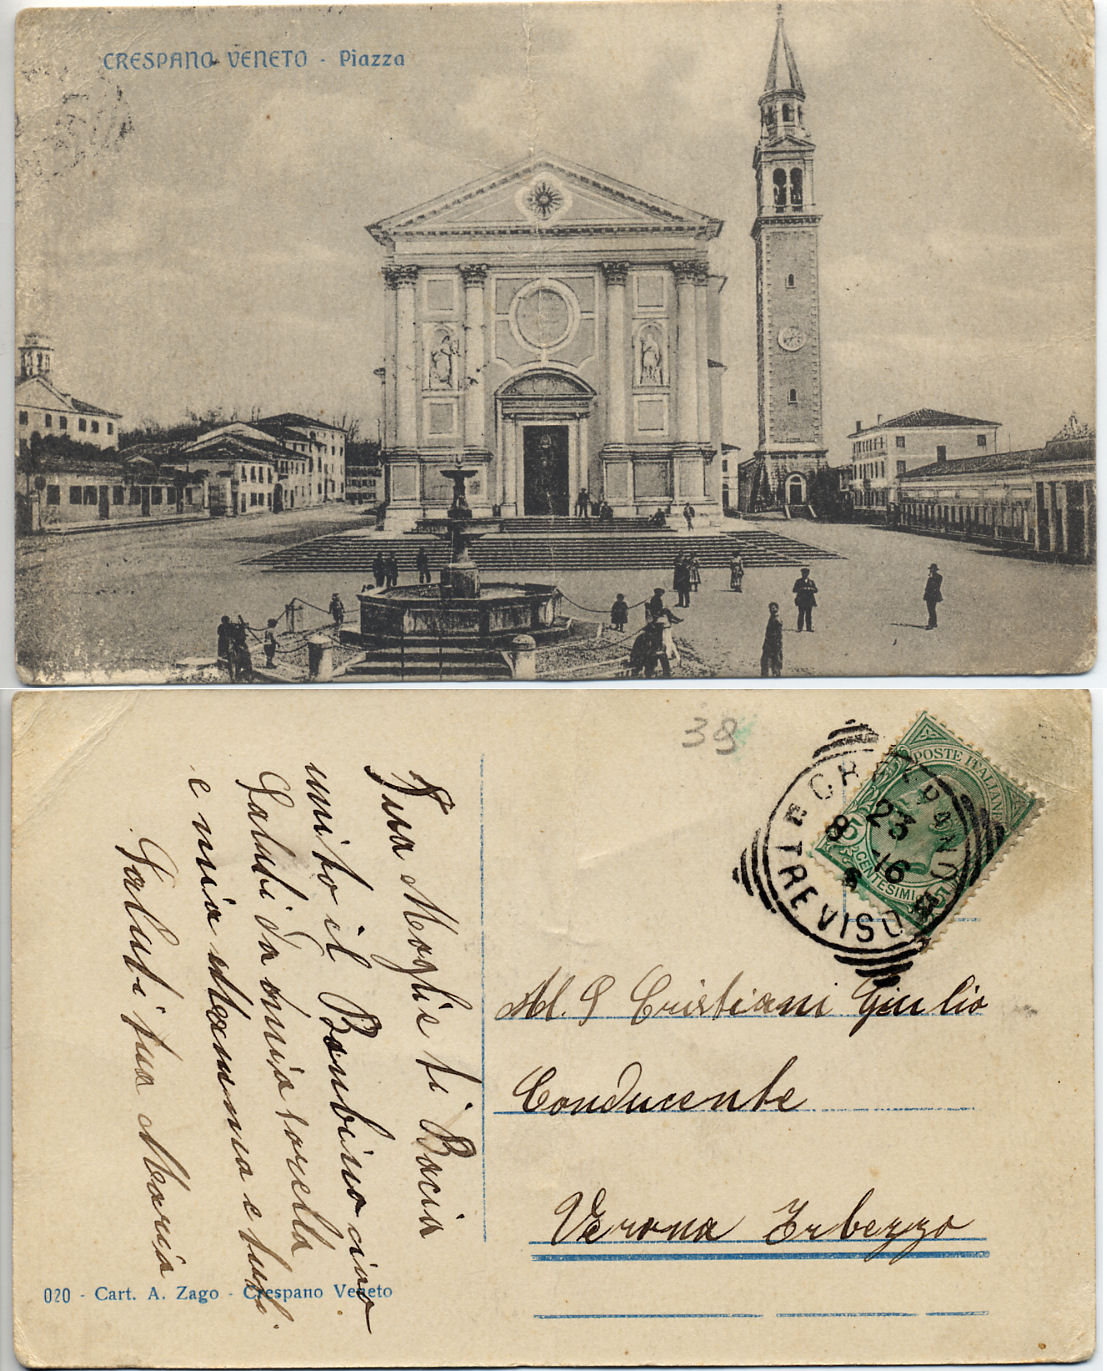 CRESPANO VENETO - Piazza
38
POSTE ITALIANE
CENTESIMI
23
8 16
TREVISO
M. S Cristiani Giulio
Conducente
Verona Erbezzo
Tua Moglie ti Bacia
unito il Bambino ciao
Saluti da mia sorella
e mia Mamma e tuti
Saluti tua Maria
020 - Cart. A. Zago - Crespano Veneto